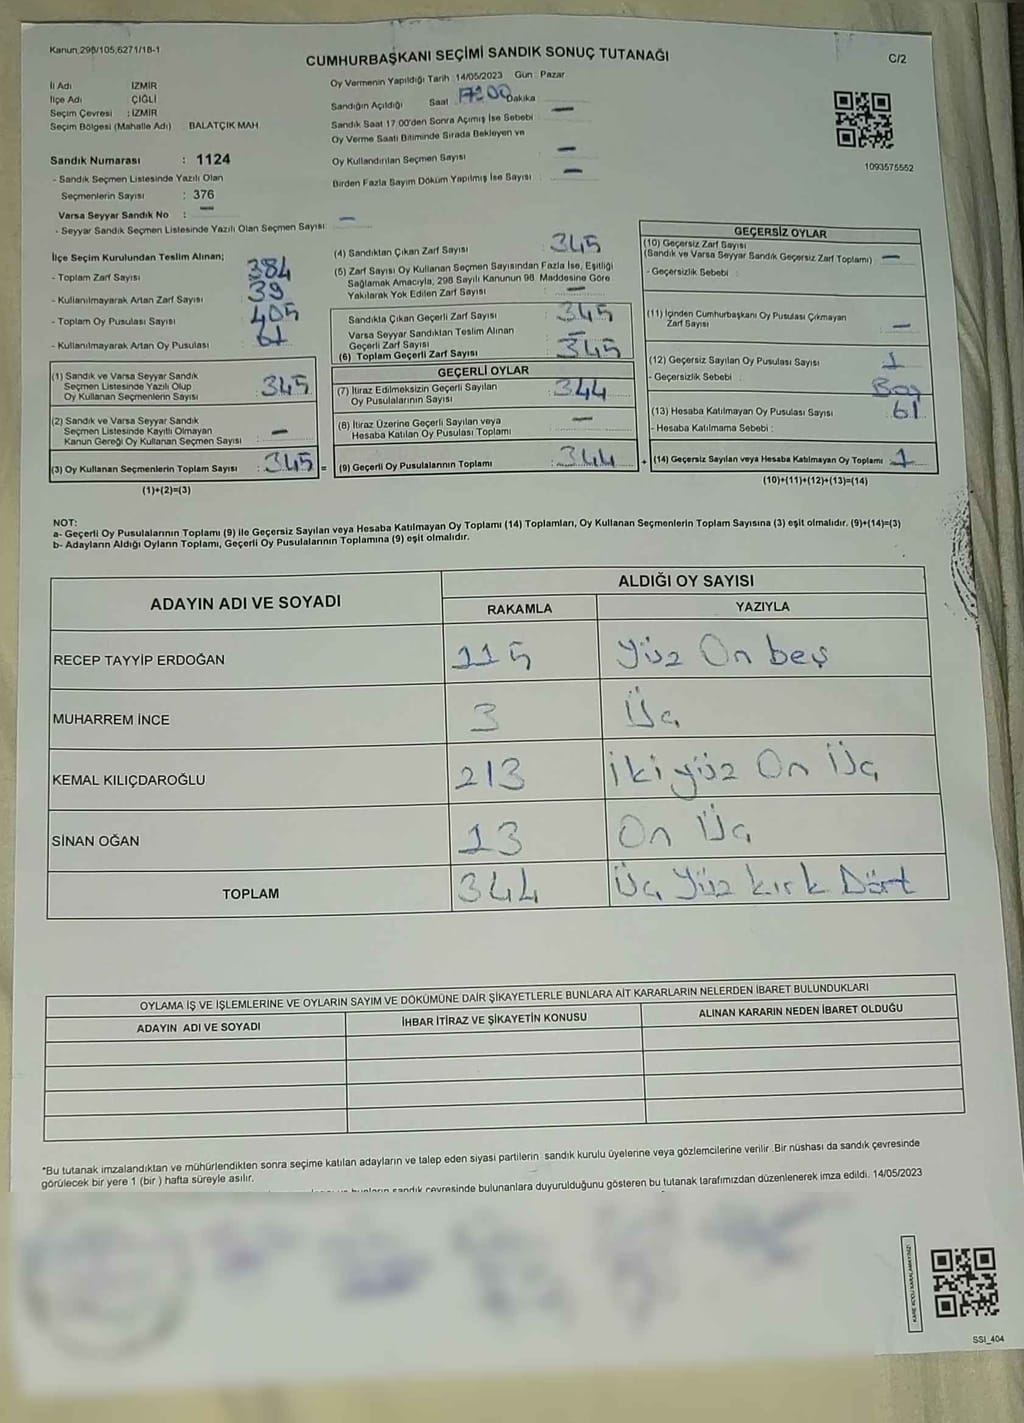 Kanun,298/105,6271/18-1
CUMHURBAŞKANI SEÇİMİ SANDIK SONUÇ TUTANAĞI
C/2
İl Adı İZMİR
İlçe Adı ÇİĞLİ
Seçim Çevresi : İZMİR
Seçim Bölgesi (Mahalle Adı) BALATÇIK MAH
Oy Vermenin Yapıldığı Tarih 14/05/2023 Gün : Pazar
Sandığın Açıldığı Saat 17:00 Dakika
Sandık Saat 17.00'den Sonra Açımış İse Sebebi : —
Oy Verme Saati Bitiminde Sırada Bekleyen ve
Oy Kullandırılan Seçmen Sayısı —
Birden Fazla Sayım Döküm Yapılmış İse Sayısı : —
1093575552
Sandık Numarası : 1124
- Sandık Seçmen Listesinde Yazılı Olan
Seçmenlerin Sayısı : 376
Varsa Seyyar Sandık No : —
- Seyyar Sandık Seçmen Listesinde Yazılı Olan Seçmen Sayısı : —
İlçe Seçim Kurulundan Teslim Alınan;
- Toplam Zarf Sayısı 384
- Kullanılmayarak Artan Zarf Sayısı 39
- Toplam Oy Pusulası Sayısı 405
- Kullanılmayarak Artan Oy Pusulası 61
(1) Sandık ve Varsa Seyyar Sandık
Seçmen Listesinde Yazılı Olup
Oy Kullanan Seçmenlerin Sayısı : 345
(2) Sandık ve Varsa Seyyar Sandık
Seçmen Listesinde Kayıtlı Olmayan
Kanun Gereği Oy Kullanan Seçmen Sayısı : —
(3) Oy Kullanan Seçmenlerin Toplam Sayısı : 345 =
(1)+(2)=(3)
(4) Sandıktan Çıkan Zarf Sayısı 345
(5) Zarf Sayısı Oy Kullanan Seçmen Sayısından Fazla İse, Eşitliği
Sağlamak Amacıyla, 298 Sayılı Kanunun 98. Maddesine Göre
Yakılarak Yok Edilen Zarf Sayısı : —
Sandıkta Çıkan Geçerli Zarf Sayısı : 345
Varsa Seyyar Sandıktan Teslim Alınan
Geçerli Zarf Sayısı : —
(6) Toplam Geçerli Zarf Sayısı : 345
GEÇERLİ OYLAR
(7) İtiraz Edilmeksizin Geçerli Sayılan
Oy Pusulalarının Sayısı : 344
(8) İtiraz Üzerine Geçerli Sayılan veya
Hesaba Katılan Oy Pusulası Toplamı : —
(9) Geçerli Oy Pusulalarının Toplamı : 344 +
GEÇERSİZ OYLAR
(10) Geçersiz Zarf Sayısı
(Sandık ve Varsa Seyyar Sandık Geçersiz Zarf Toplamı) —
- Geçersizlik Sebebi :
(11) İçinden Cumhurbaşkanı Oy Pusulası Çıkmayan
Zarf Sayısı —
(12) Geçersiz Sayılan Oy Pusulası Sayısı : 1
- Geçersizlik Sebebi : Boş
(13) Hesaba Katılmayan Oy Pusulası Sayısı : 61
- Hesaba Katılmama Sebebi :
(14) Geçersiz Sayılan veya Hesaba Katılmayan Oy Toplamı : 1
(10)+(11)+(12)+(13)=(14)
NOT:
a- Geçerli Oy Pusulalarının Toplamı (9) ile Geçersiz Sayılan veya Hesaba Katılmayan Oy Toplamı (14) Toplamları, Oy Kullanan Seçmenlerin Toplam Sayısına (3) eşit olmalıdır. (9)+(14)=(3)
b- Adayların Aldığı Oyların Toplamı, Geçerli Oy Pusulalarının Toplamına (9) eşit olmalıdır.
ADAYIN ADI VE SOYADI
ALDIĞI OY SAYISI
RAKAMLA YAZIYLA
RECEP TAYYİP ERDOĞAN 115 Yüz On beş
MUHARREM İNCE 3 Üç
KEMAL KILIÇDAROĞLU 213 İki yüz On Üç
SİNAN OĞAN 13 On Üç
TOPLAM 344 Üç Yüz kırk Dört
OYLAMA İŞ VE İŞLEMLERİNE VE OYLARIN SAYIM VE DÖKÜMÜNE DAİR ŞİKAYETLERLE BUNLARA AİT KARARLARIN NELERDEN İBARET BULUNDUKLARI
ADAYIN ADI VE SOYADI İHBAR İTİRAZ VE ŞİKAYETİN KONUSU ALINAN KARARIN NEDEN İBARET OLDUĞU
*Bu tutanak imzalandıktan ve mühürlendikten sonra seçime katılan adayların ve talep eden siyasi partilerin sandık kurulu üyelerine veya gözlemcilerine verilir. Bir nüshası da sandık çevresinde
görülecek bir yere 1 (bir ) hafta süreyle asılır.
sandık çevresinde bulunanlara duyurulduğunu gösteren bu tutanak tarafımızdan düzenlenerek imza edildi. 14/05/2023
KARE KODU KARALAMAYINIZ!
SSI_404